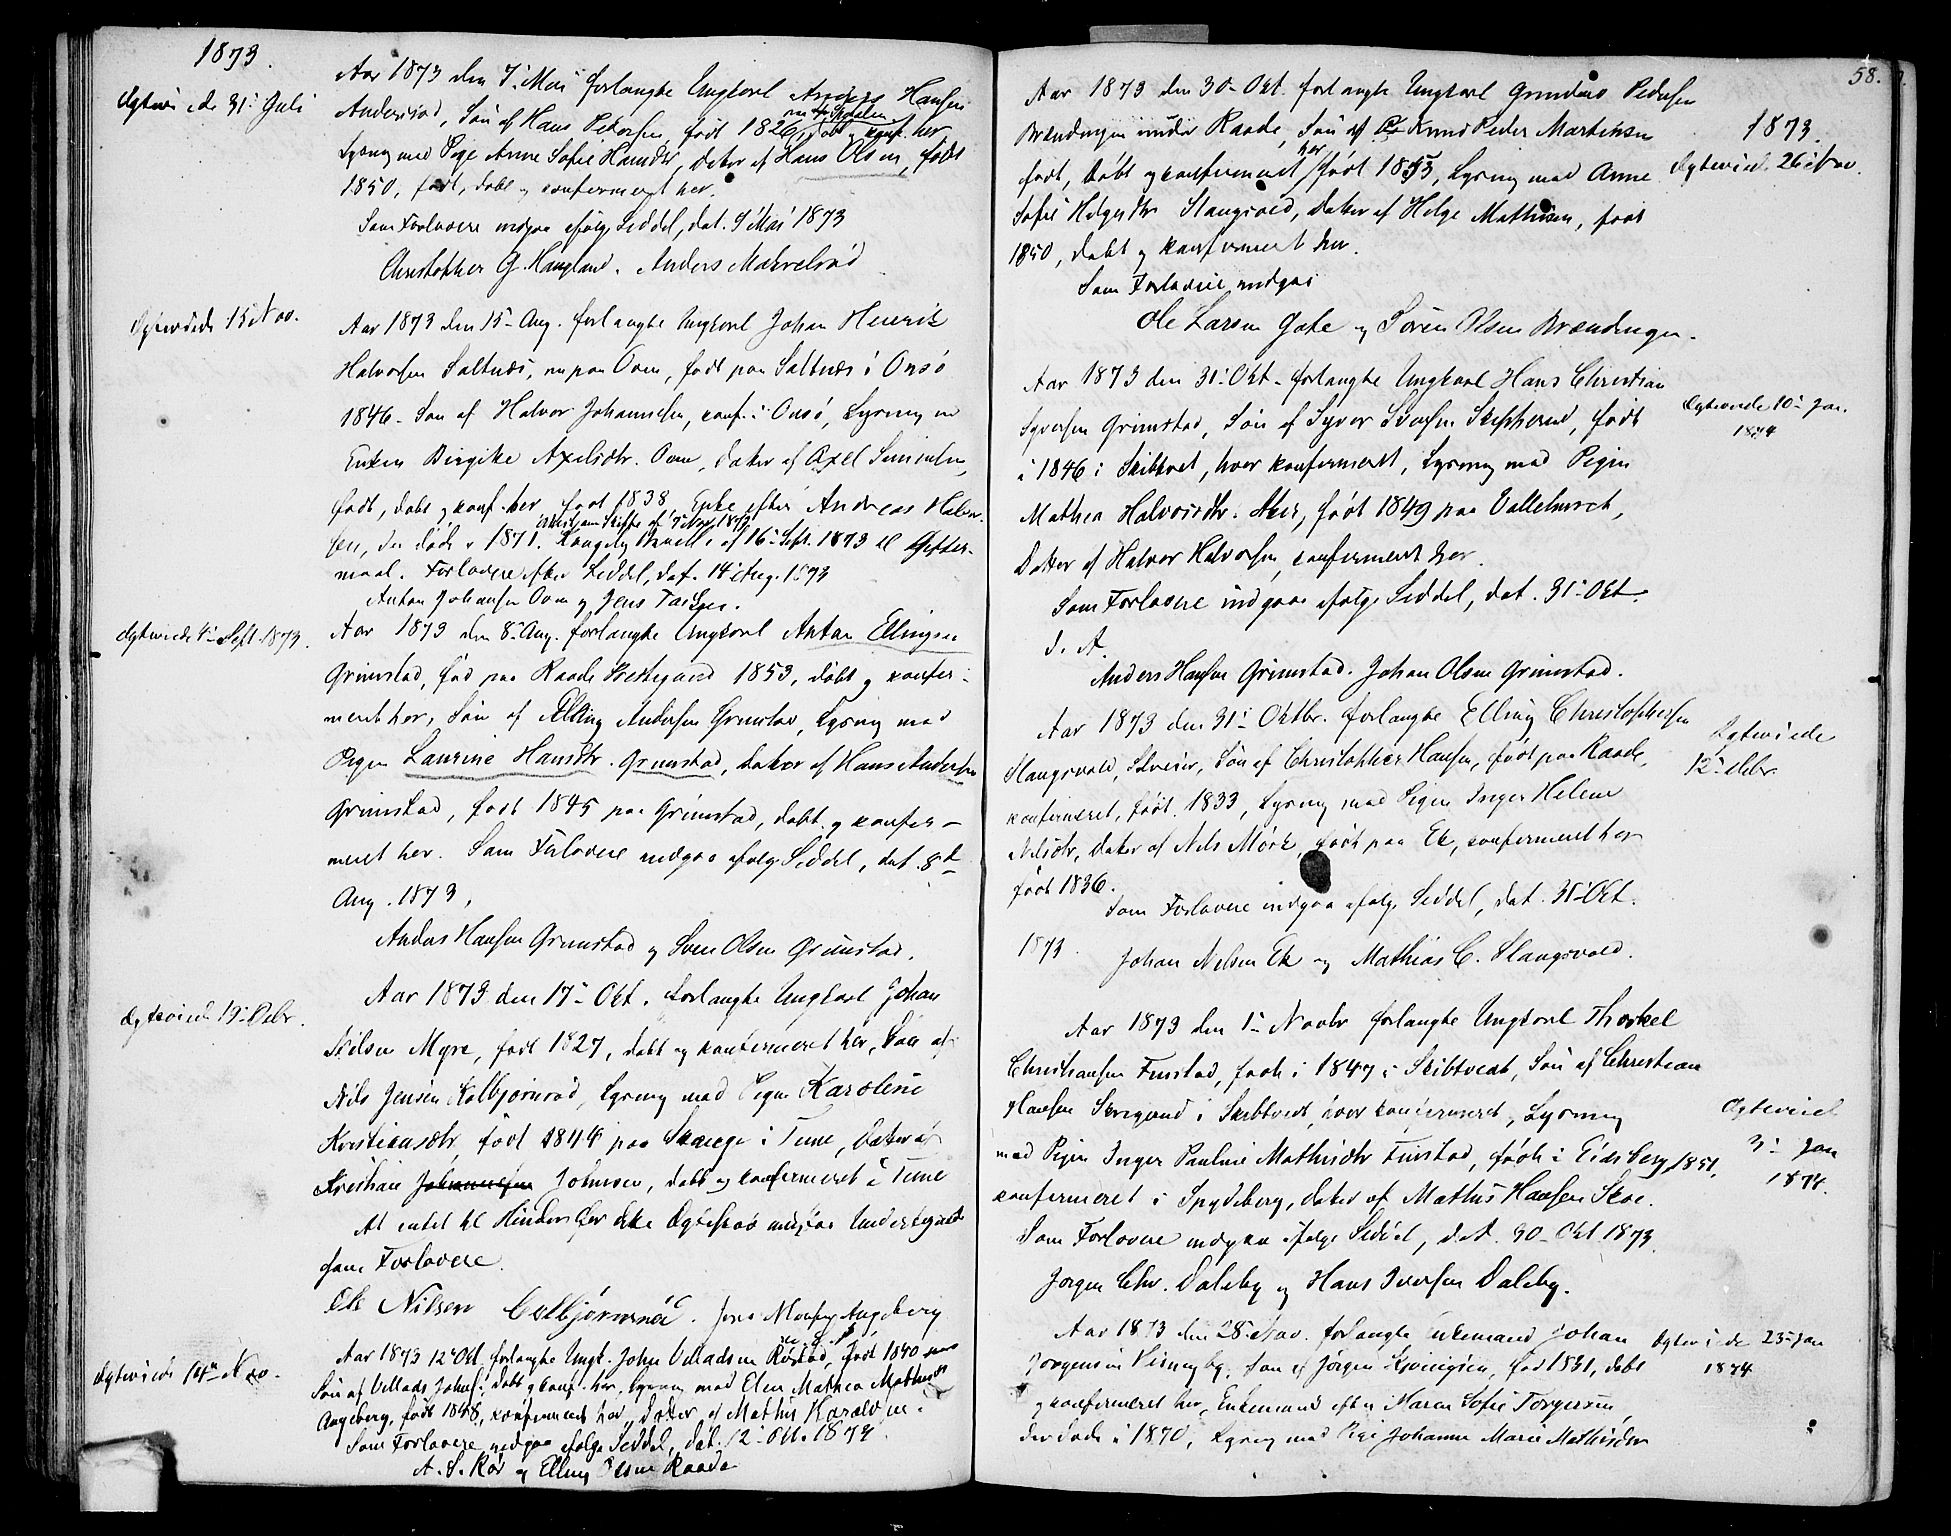 1873.
Ægteviede 31' Juli
Aar 1873 den 7' Mai forlangte Ungkarl Anders Hansen
Andersrød, Søn af Hans Petersen, født 1826, døbt og konf. her,
Lysning med Pige Anne Sofie Hansdtr, Datter af Hans Olsen, født
1850, født, døbt og konfermeret her.
Som Forlovere indgaa ifølge Seddel, dat. 7' Mai 1873
Christopher G. Haugland. Anders Makrelrød
Ægteviede 15' Nov.
Aar 1873 den 15- Aug. forlangte Ungkarl Johan Henrik
Halvorsen Saltnæs, nu paa Oven, født paa Saltnæs i Onsø
1846- Søn af Halvor Johannesen, konf. i Onsø, Lysning m
Enken Birgitte Axelsdtr. Oven, Datter af Axel Simensen,
født, døbt og konf. her, født 1838. Enke efter Andreas Halvor-
sen, der døde i 1871. Kongelig Bevill. af 16- Sept. 1873 til Gifter-
maal. Forlovere efter Seddel, dat. 14' Aug. 1873
Anton Johansen Oven og Jens
Ægteviede 4' Sept. 1873.
Aar 1873 den 8- Aug. forlangte Ungkarl Anton Ellingsen
Grimstad, fød paa Raade Prestegaard 1853, døbt og konfer-
meret her, Søn af Elling Andersen Grimstad, Lysning med
Pigen Laurine Hansdtr. Grimstad, Datter af Hans Andersen
Grimstad, født 1845 paa Grimstad, døbt og konfer-
meret her. Som Forlovere indgaa ifølge Seddel, dat. 8d
Aug. 1873,
Anders Hansen Grimstad og Sven Olsen Grimstad.
Ægteviede 19' Debr.
Aar 1873 den 17- Okt. forlangte Ungkarl Johan
Nilsen Myre, født 1827, døbt og konfermeret her, Søn af
Nils Jensen Kolbjørnrød, Lysning med Pigen Karoline
Kristiansdtr, født 1844 paa i Tune, Datter af
Kristian Johnsen, døbt og konfermeret i Tune
At intet til Hinder for dette Ægteskab indgaa Undertegnede
som Forlovere.
Ole Nilsen Colbjørnsrød. Jens Augeberg
Ægteviede 14de Nov.
Aar 1873 12' Okt forlangte Ungk. Johan Villadsen Røstad, født 1840
Søn af Villads Johns., døbt og konf. her, Lysning med Elen Mathea Mathisdtr
Augeberg, født 1848, konfermeret her, Datter af Mathis Haraldsen.
Som Forlovere indgaa ifølge Seddel, dat. 12' Okt. 1873.
A. S. Rør og Elling Olsen Raade
58.
1873.
Ægteviede 26' Nov.
Aar 1873 den 30- Okt. forlangte Ungkarl Gunder Pedersen
Brændingen under Raade, Søn af Knud Peder Martinsen
født, døbt og konfermeret her, født 1853, Lysning med Anne
Sofie Helgesdtr Slangsvold, Datter af Helge Mathisen, født
1850, døbt og konfermeret her.
Som Forlovere indgaa
Ole Larsen Gate og Søren Olsen Brændingen.
Ægteviede 10' Jan.
1874
Aar 1873 den 31' Okt. forlangte Ungkarl Hans Christian
Syversen Grimstad, Søn af Syver Svensen, født
i 1846 i Skibtvet, hvor konfermeret, Lysning med Pigen
Mathea Halvorsdtr., født 1849 paa,
Datter af Halvor Halvorsen, konfermeret her.
Som Forlovere indgaa ifølge Seddel, dat. 31' Okt.
d. A.
Anders Hansen Grimstad. Johan Olsen Grimstad.
Ægteviede
12' Debr.
Aar 1873 den 31' Oktbr. forlangte Elling Christophersen
Slangsvold, Søn af Christopher Hansen, født paa Raade,
konfirmeret, født 1833, Lysning med Pigen Inger Helene
Nilsdtr, Datter af Nils Mørk, født paa Ek, konfermeret her
født 1836.
Som Forlovere indgaa ifølge Seddel, dat. 31' Okt.
1873.
Johan Nilsen Ek og Mathias C. Slangsvold.
Ægteviede
3' Jan
1874.
Aar 1873 den 1' Novbr forlangte Ungkarl Thorkel
Christiansen Finstad, født i 1847 i Skibtvedt, Søn af Christian
Hansen i Skibtvedt, hvor konfermeret, Lysning
med Pigen Inger Pauline Mathisdtr Finstad, født i Eidsberg 1851,
konfermeret i Spydeberg, Datter af Mathis Hansen Skoe.
Som Forlovere indgaa ifølge Seddel, dat. 30- Okt 1873
Jørgen Chr. Daleby og Hans Iversen Daleby.
Ægteviede 23' Jan
1874
Aar 1873 den 28' Nov. forlangte Enkemand Johan
Jørgensen, Søn af Jørgen, fød 1831, døbt
og konfermeret her, Enkemand efter Maren Sofie Torgersen,
der døde i 1870, Lysning med Pige Johanne Marie Mathisdtr